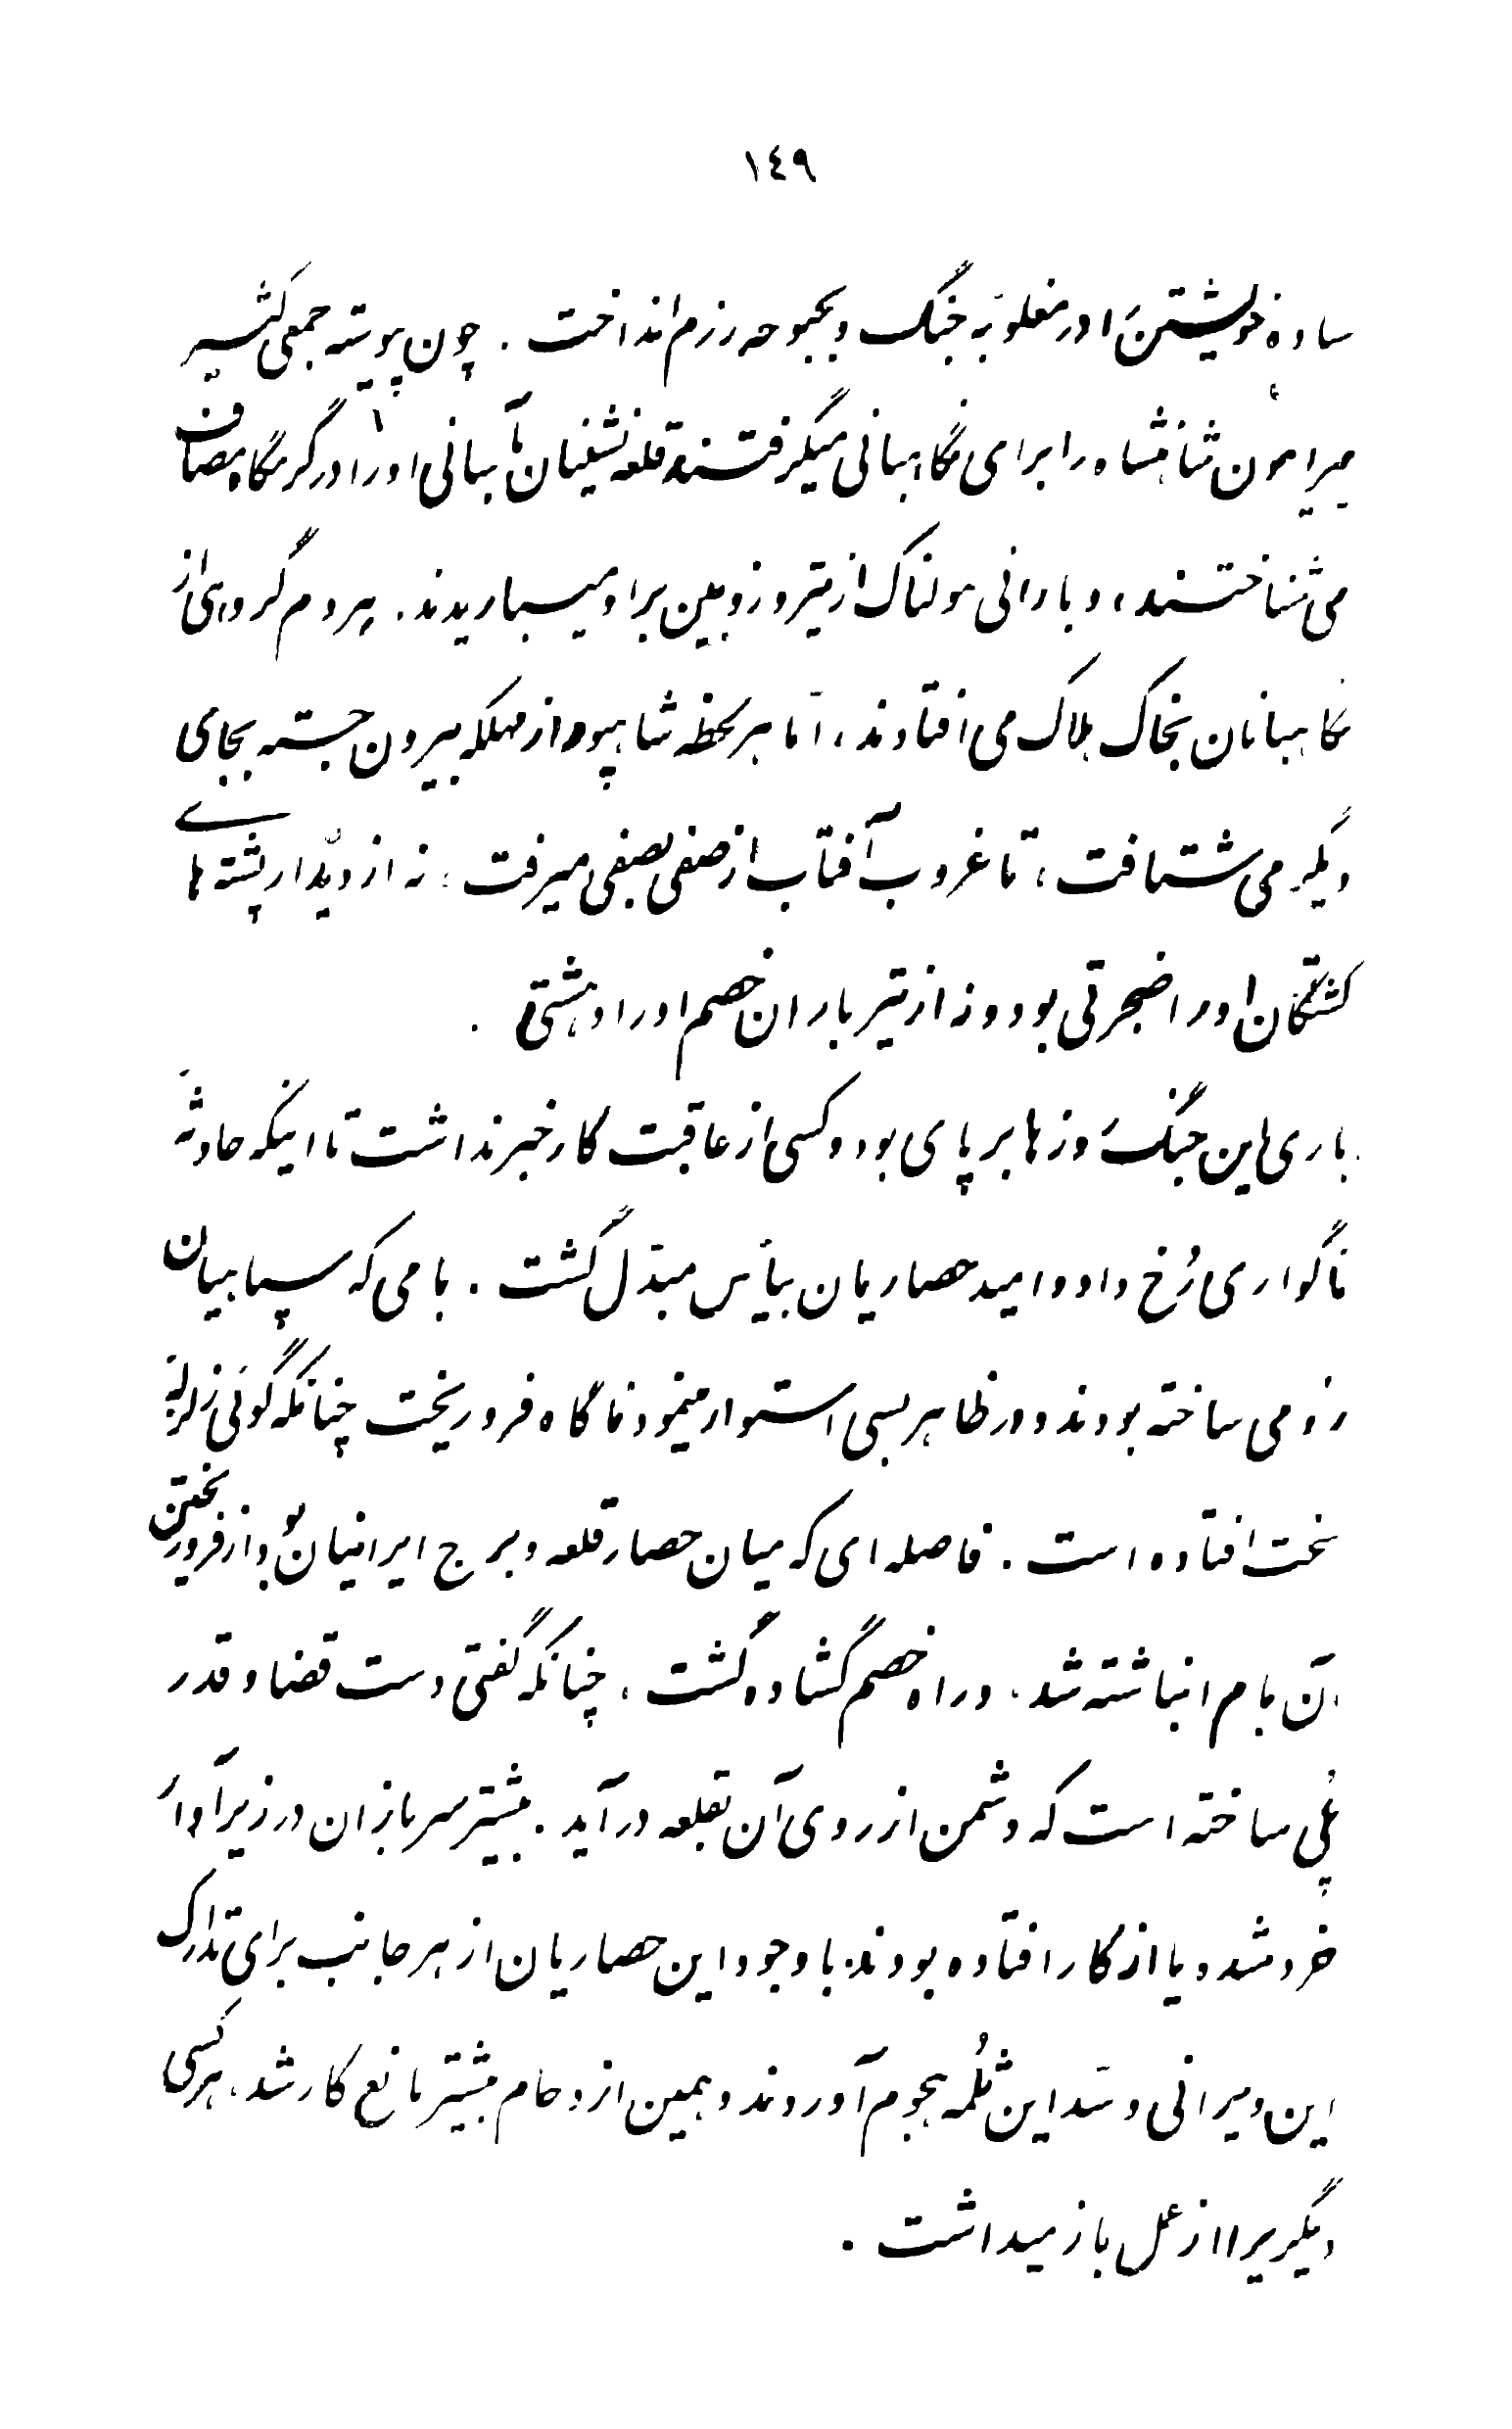 ١٤٩
ساده خویشتن را در مغلوبه جنگ و بحبوحه رزم انداخت . چون پیوسته جمعی کثیر
پیرامون شاهنشاه را برای نگاهبانی میگرفتند قلعه نشینان بآسانی او را در گرمگاه مصاف
می شناختند ، و بارانی هولناک از تیر و زوبین بر او میباریدند . هر دم گروهی از
نگاهبانان بخاک هلاک می افتادند ، امّا هر لحظه شاپور از مهلکه بیرون جسته بجای
دیگر می شتافت ، تا غروب آفتاب از صفی بصفی میرفت ؛ نه از دیدار پشته های
کشتگان او را ضجرتی بود و نه از تیر باران خصم او را دهشتی .
باری این جنگ روزها بر پای بود و کسی از عاقبت کار خبر نداشت تا اینکه حادثهٔ
ناگواری رُخ داد و امید حصاریان بیأس مبدّل گشت . بامی که سپاهیان
رومی ساخته بودند و در ظاهر بسی استوار مینمود ناگاه فرو ریخت چنانکه گوئی زلزلهٔ
سخت افتاده است . فاصله ای که میان حصار قلعه و برج ایرانیان بود از فرو ریختن
آن بام انباشته شد . و راه خصم گشاده گشت ، چنانکه گفتی دست قضا و قدر
پُلی ساخته است که دشمن از روی آن بقلعه در آید . بیشتر سربازان در زیر آوار
خرد شده یا از کار افتاده بودند . با وجود این حصاریان از هر جانب برای تدارک
این ویرانی و سدّ این ثُلمه هجوم آوردند و همین ازدحام بیشتر مانع کار شد ، هر کسی
دیگریرا از عمل باز میداشت .